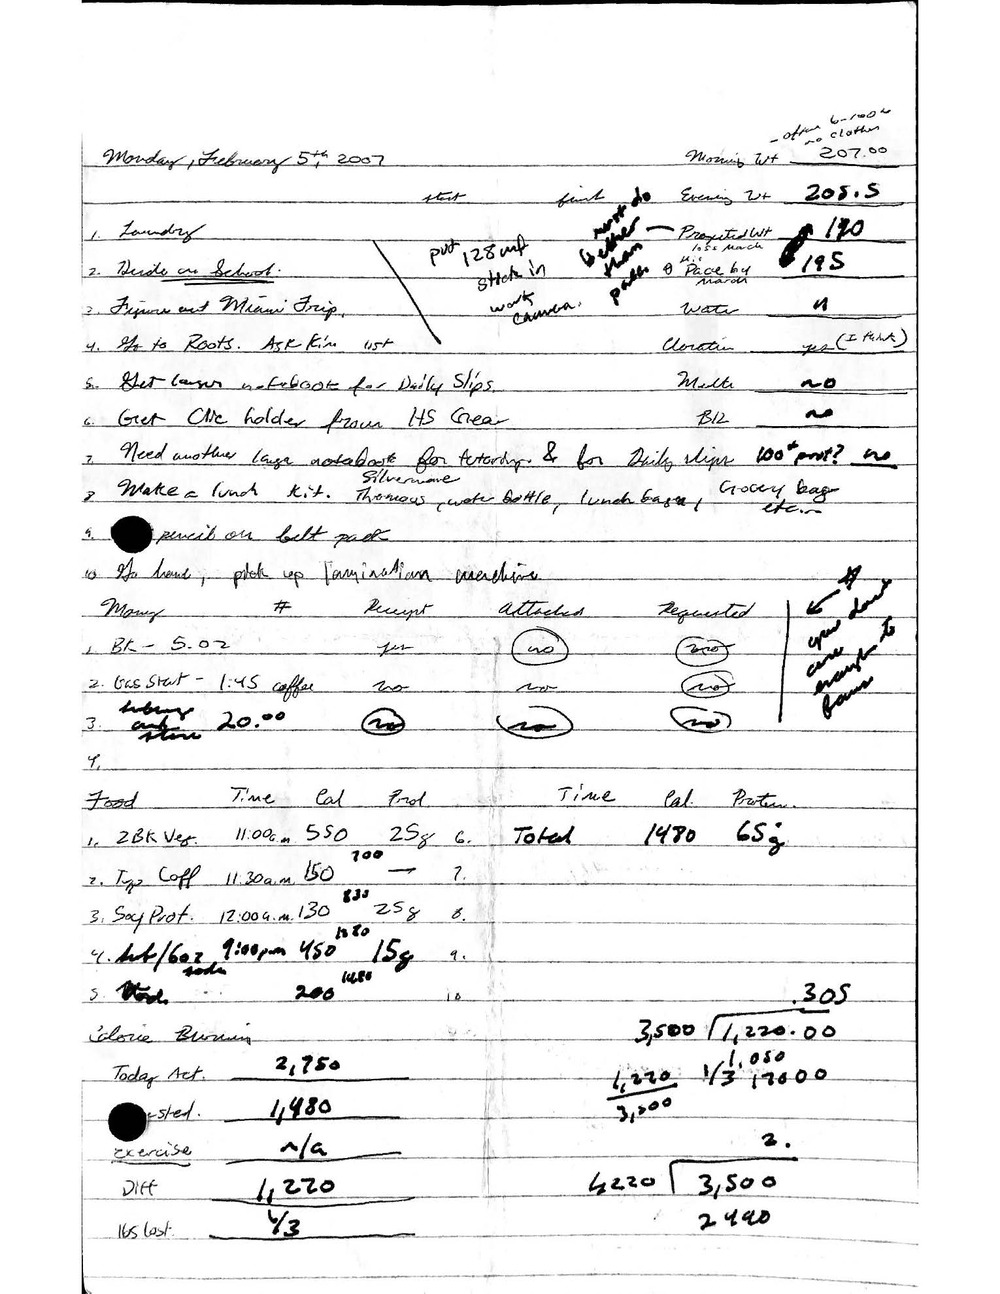 - after
no clothes
Monday, February 5th, 2007 Morning Wt 207.00
start finish Evening Wt 205.5
1. Laundry Projected Wt 190
loss March
2. Decide on School. Pace by 195
March
put 128 mf
stick in
work
camera.
must do
better
than
3. Figure out Miami Trip. Water
4. Go to Roots. Ask Kim yes (I think)
5. Get larger notebook for Daily Slips. no
6. Get Clic holder from HS Gear B12 no
7. Need another large notebook for & for Daily slips 100+ prot? no
Silverware
8. Make a lunch kit. Thomous, water bottle, lunch bags, Grocery bag
etc.
9. pencil on belt pack
10. Go home, pick up lamination machine
Money # Receipt Attached Requested
1. BK - 5.02 yes no no
2. Gas Stat - 1.45 coffee no no no
3. 20.00 no no no
store
4.
you dont
care
enough to
Food Time Cal Prot Time Cal. Protein.
1. 2 BK Veg. 11:00a.m 550 25g 6. Total 1480 65g
700
2. Coff 11:30a.m. 150 — 7.
830
3. Soy Prot. 12:00a.m. 130 25g 8.
1280
4. sub/6oz 9:00pm 450 15g 9.
soda
1480
5. 200 10.
.305
Calorie Burnin 3,500 1,220.00
1,050
Today Act. 2,750 1,220 1/3 17000
3,500
sted. 1,480
exercise n/a 2.
Diff 1,270 1,220 3,500
lbs lost. 1/3 2440